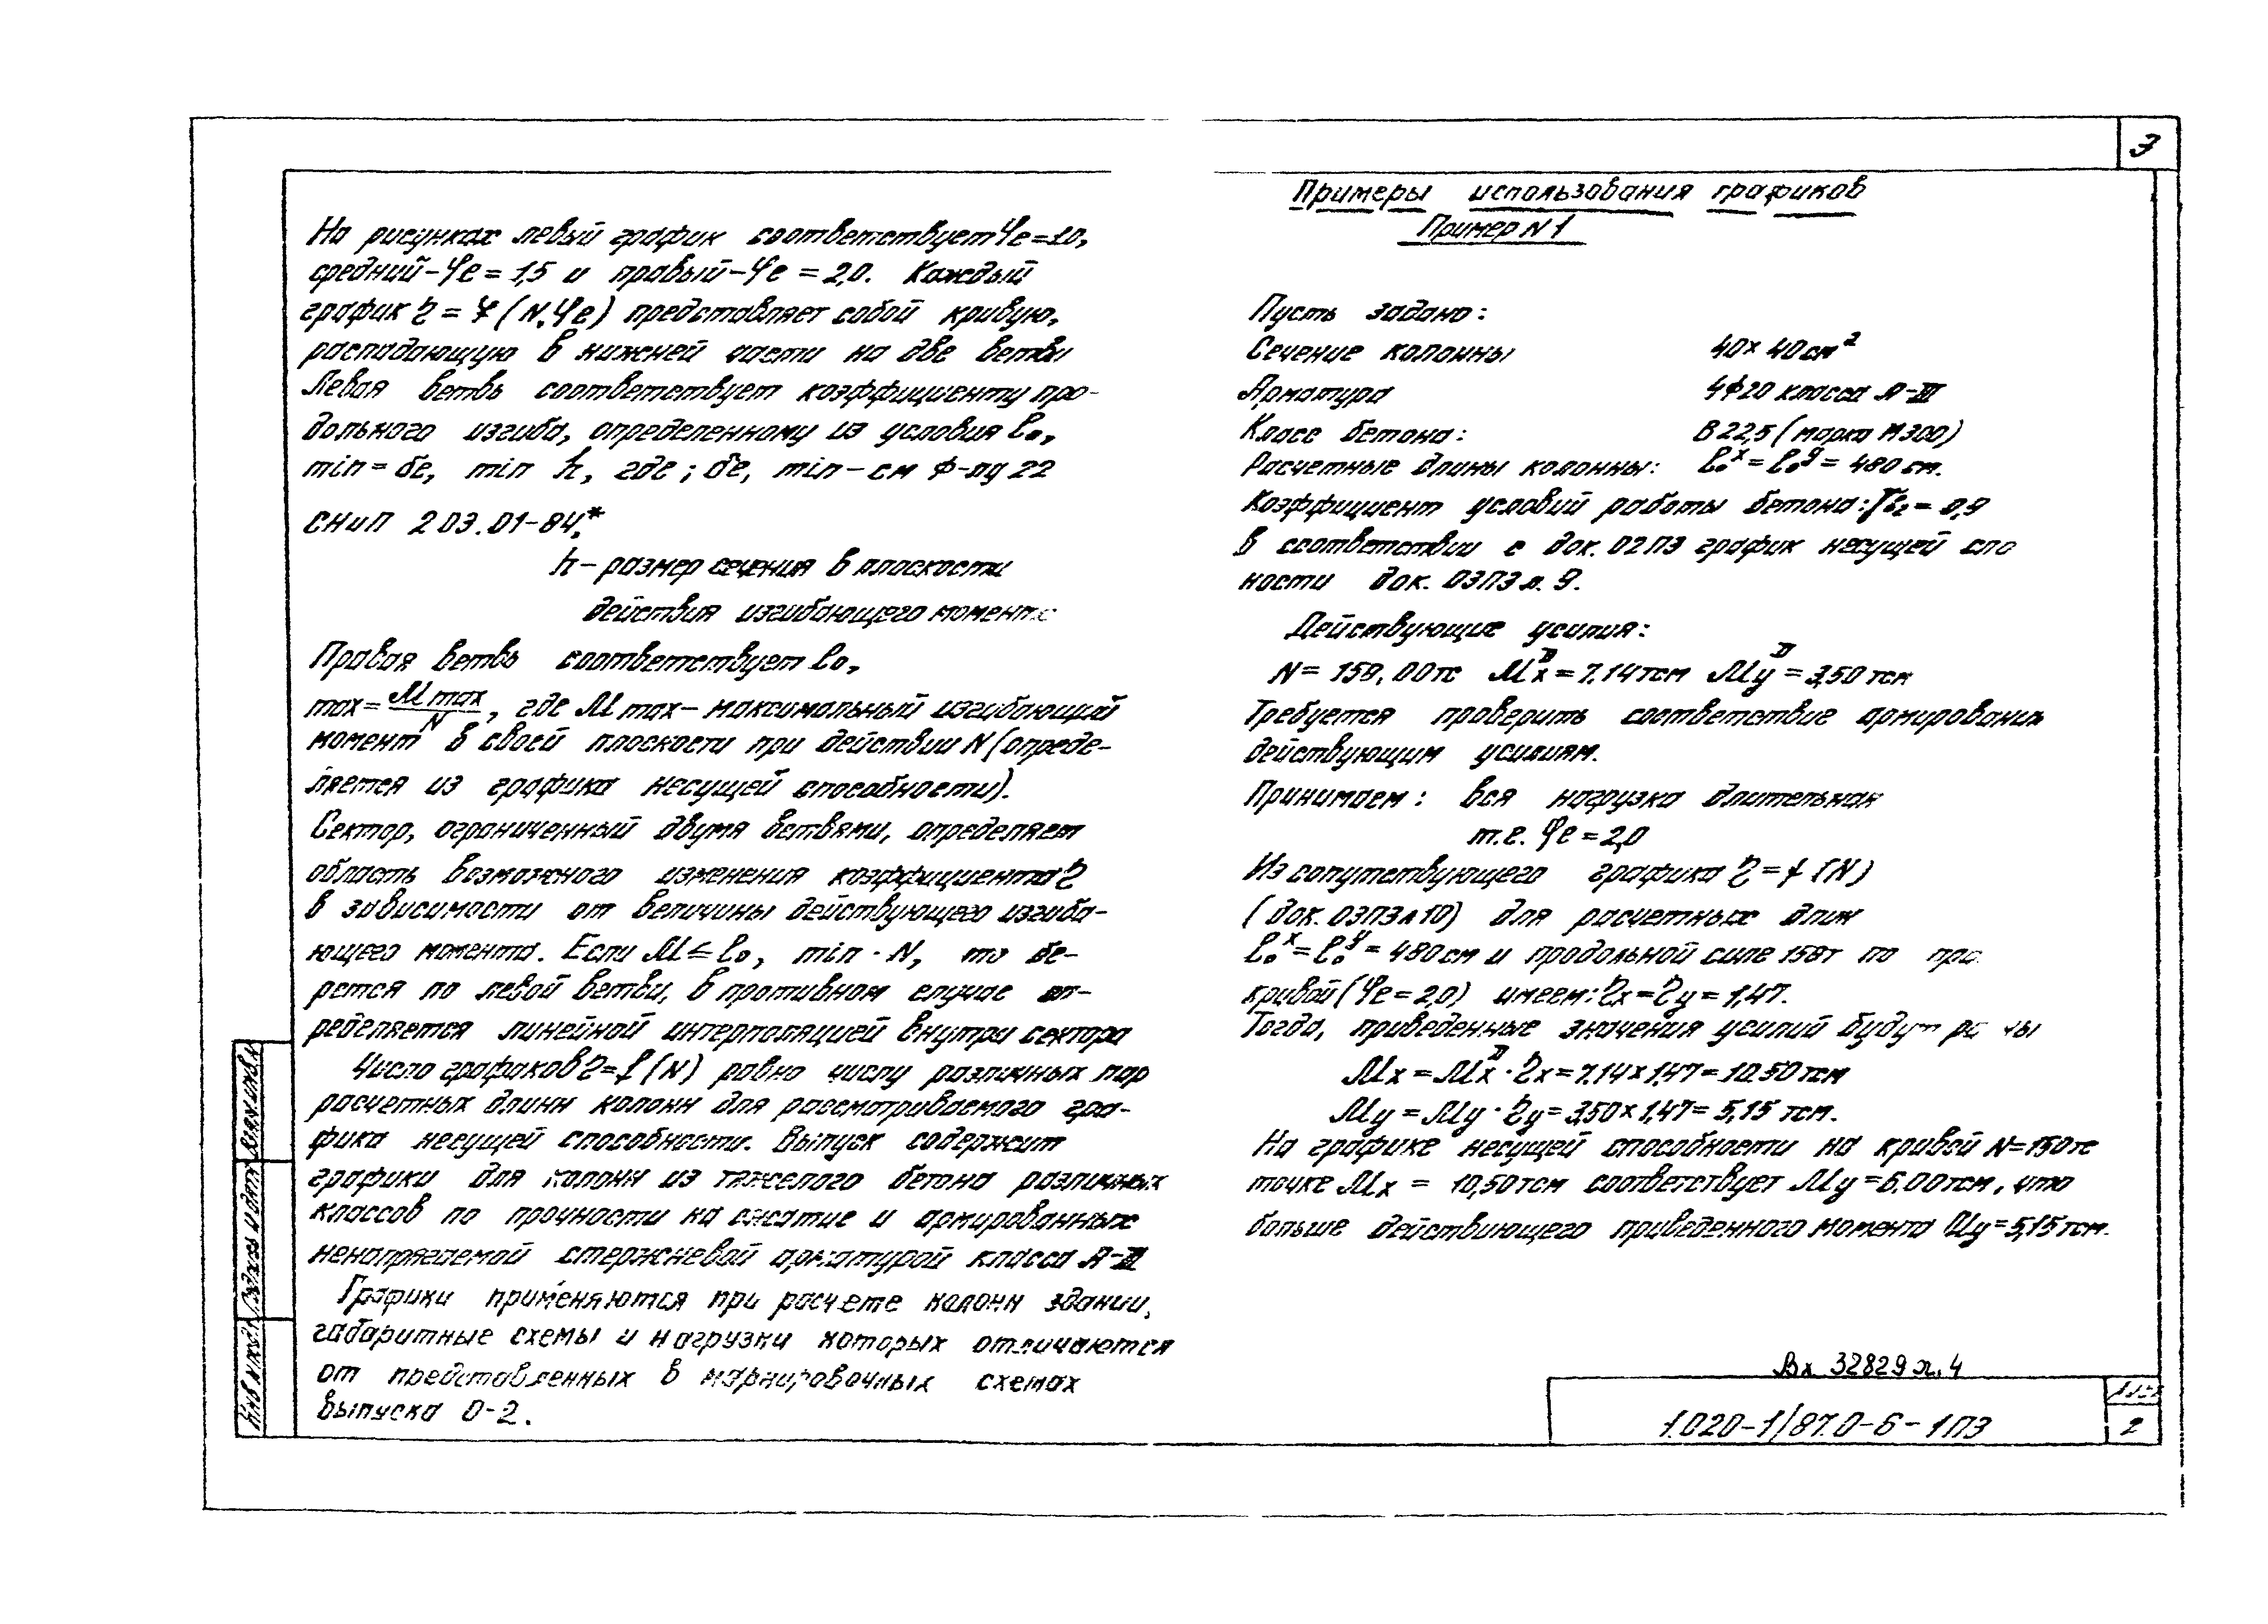 3
На рисунках левый график соответствует φe=1,0,
средний-φe=1,5 и правый-φe=2,0. Каждый
график η=Ψ(N,φe) представляет собой кривую,
распадающую в нижней части на две ветви
Левая ветвь соответствует коэффициенту про-
дольного изгиба, определенному из условия l₀,
min=δe, min h, где; δe, min-см ф-лу 22
СНиП 2 03.01-84*
h-размер сечения в плоскости
действия изгибающего момента
Правая ветвь соответствует l₀,
max=M max/N, где M max-максимальный изгибающий
момент в своей плоскости при действии N(опреде-
ляется из графика несущей способности).
Сектор, ограниченный двумя ветвями, определяет
область возможного изменения коэффициента η
в зависимости от величины действующего изгиба-
ющего момента. Если M≤l₀, min·N, то бе-
рется по левой ветви, в противном случае оп-
ределяется линейной интерполяцией внутри сектора
Число графиков η=f(N) равно числу различных пар
расчетных длинн колонн для рассматриваемого гра-
фика несущей способности. Выпуск содержит
графики для колонн из тяжелого бетона различных
классов по прочности на сжатие и армированных
ненапрягаемой стержневой арматурой класса А-III
Графики применяются при расчете колонн здании,
габаритные схемы и нагрузки которых отличаются
от представленных в маркировочных схемах
выпуска 0-2.
Примеры использования графиков
Пример N1
Пусть задано:
Сечение колонны 40×40см²
Арматура 4ϕ20 класса А-III
Класс бетона: В22,5(марка М300)
Расчетные длины колонны: l₀ˣ=l₀ʸ=480см.
Коэффициент условий работы бетона: γb₂=0,9
В соответствии с док. 02ПЗ график несущей спо
ности док. 03ПЗ л. 9.
Действующие усилия:
N=158,00тс Mxᴰ=7.14тсм Myᴰ=3,50тсм
Требуется проверить соответствие армирования
действующим усилиям.
Принимаем: вся нагрузка длительная
т.е. φe=2,0
Из сопутствующего графика η=f(N)
(док. 03ПЗ л10) для расчетных длин
l₀ˣ=l₀ʸ=480см и продольной силе 158т по пра
кривой(φe=2,0) имеем: ηx=ηy=1,47.
Тогда, приведенные значения усилий будут ра ны
Mx=Mxᴰ·ηx=7.14×1,47=10.50тсм
My=My·ηy=3,50×1,47=5,15 тсм.
На графике несущей способности на кривой N=150тс
точке Mx = 10,50тсм соответствует My=6.00тсм, что
больше действующего приведенного момента My=5,15тсм.
Вх 32829 л. 4
1.020-1/87.0-6-1ПЗ
Лист
2
Взам инв.N
Подпись и дата
Инв N подл.